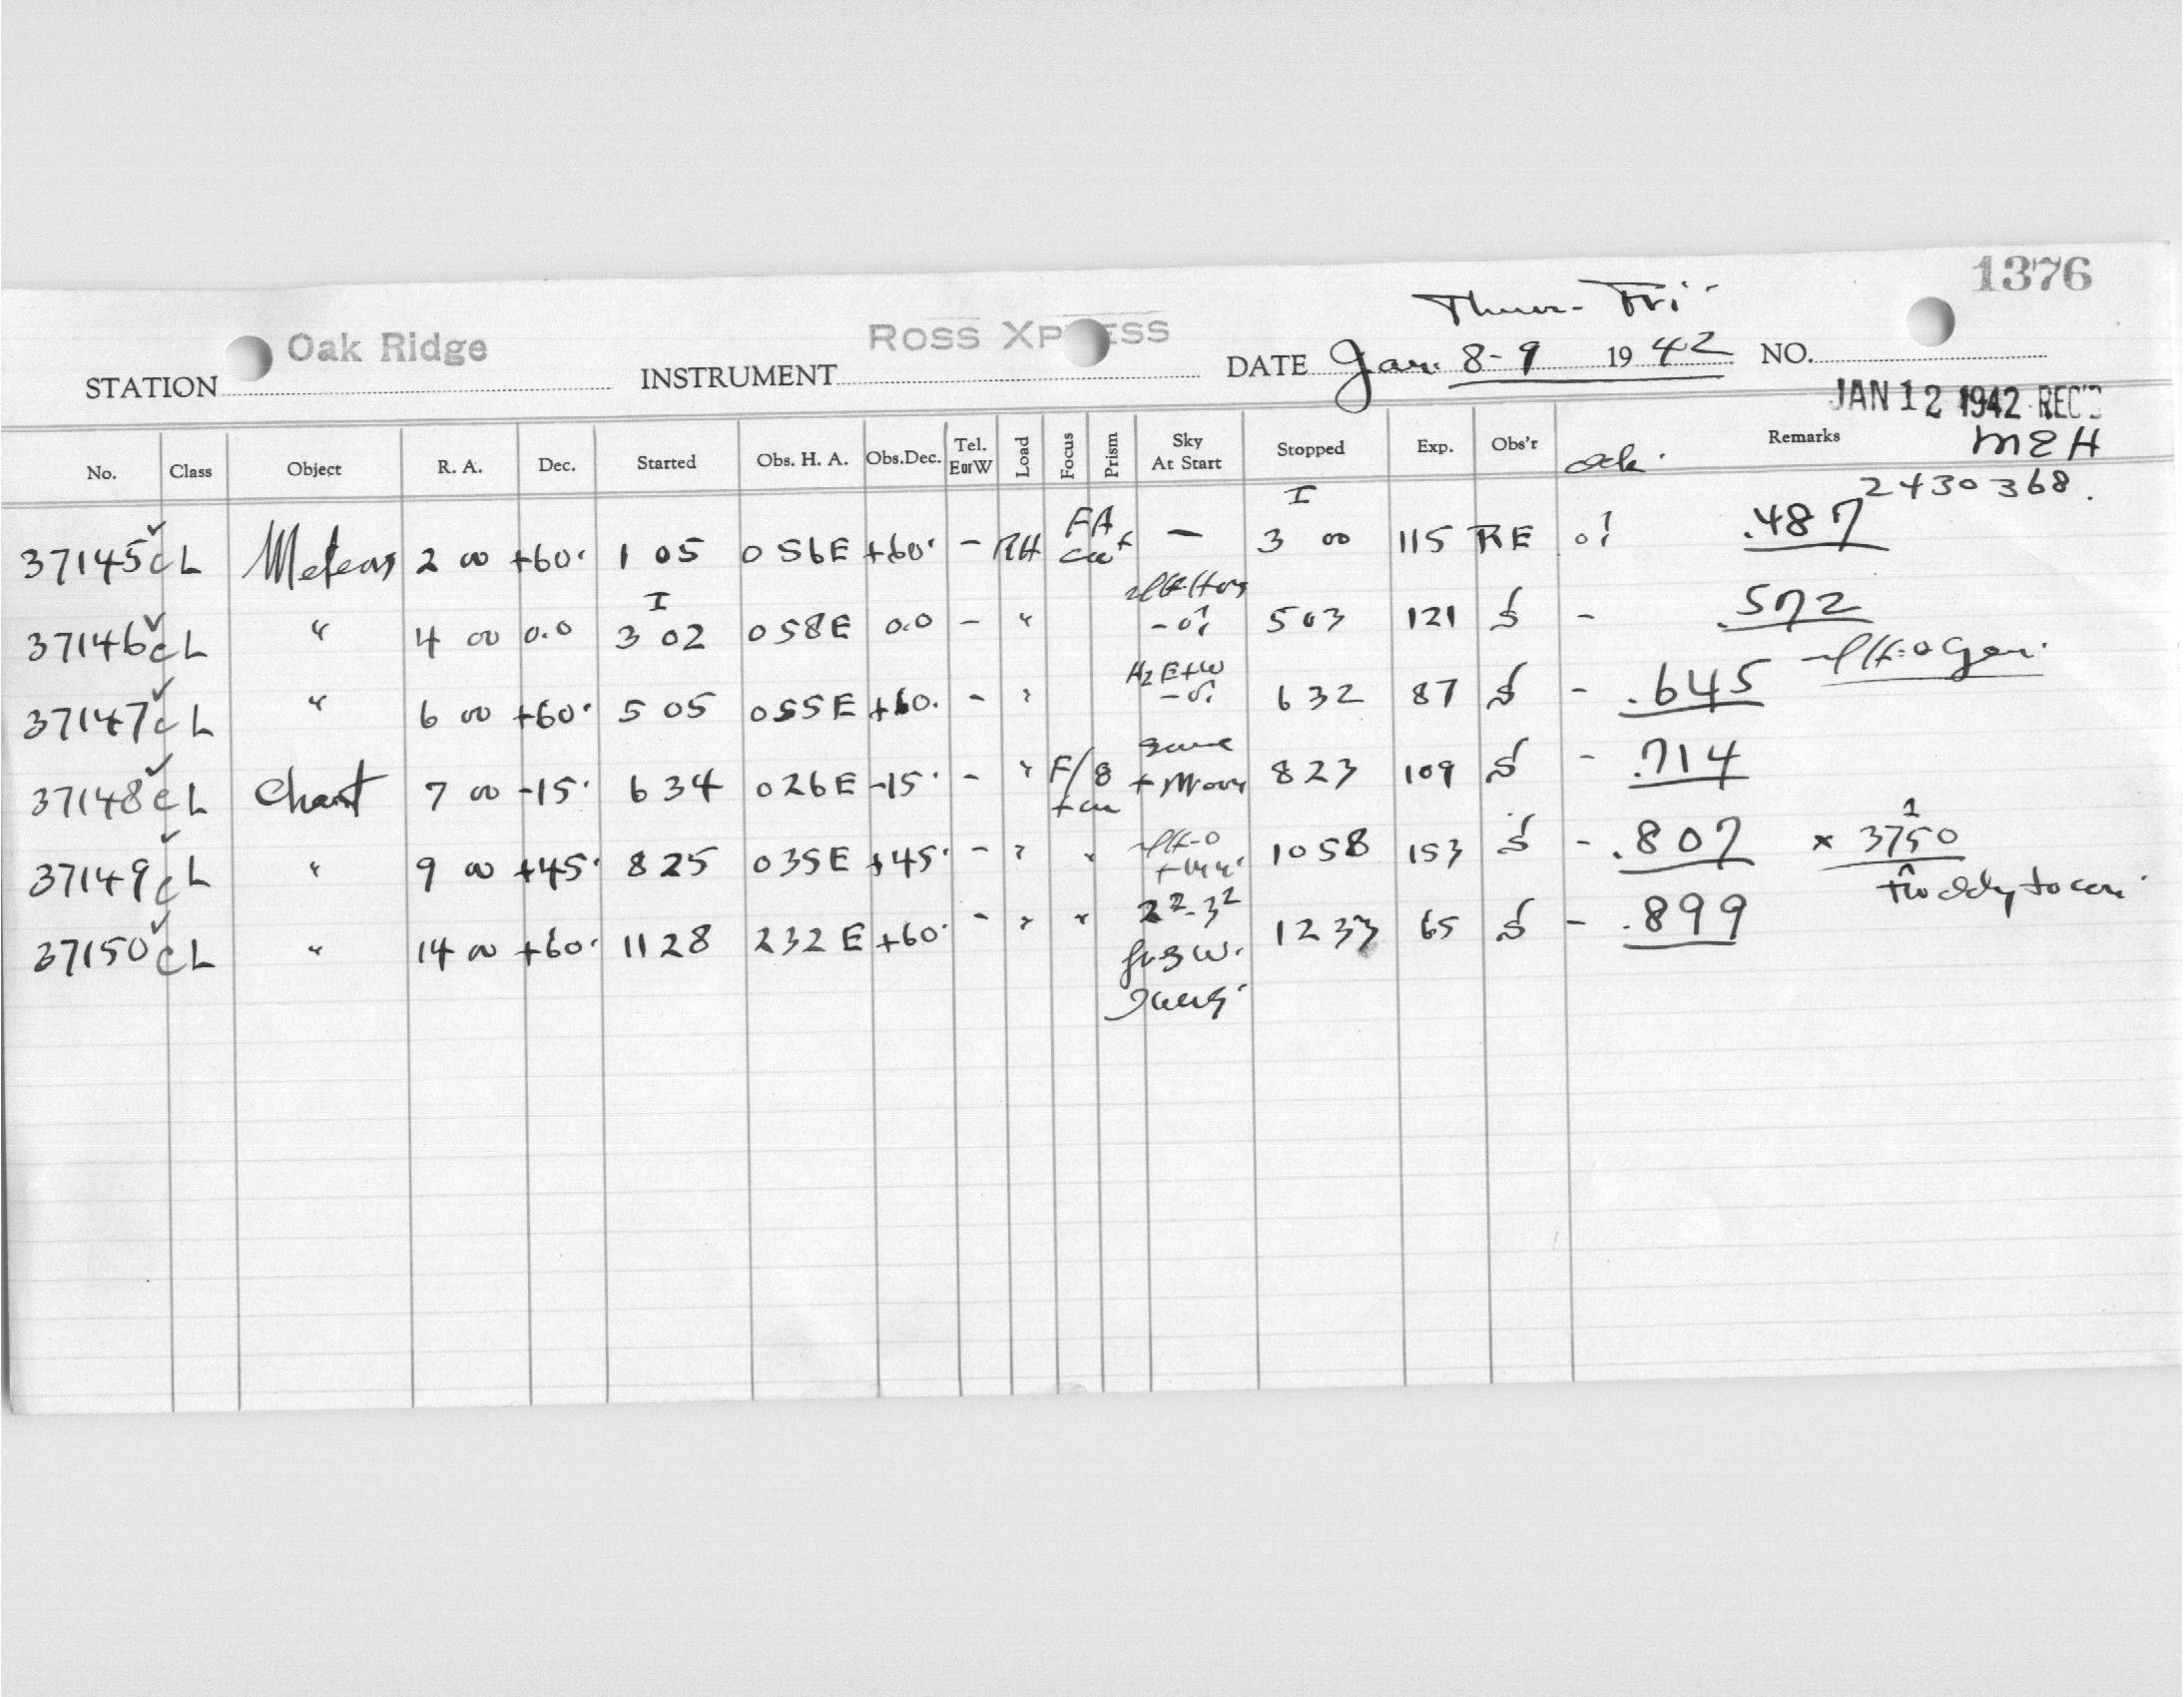 1376
Thur - Fri
STATION Oak Ridge INSTRUMENT ROSS XPRESS DATE Jan. 8-9 1942 NO.
JAN 12 1942 REC'D
MEH
No. Class Object R. A. Dec. Started Obs. H. A. Obs.Dec. Tel. E or W Load Focus Prism Sky At Start Stopped Exp. Obs'r Remarks
2430368.
37145 CL Meteors 2 00 +60° 1 05 0 56E +60° - RH FA - I 3 00 115 RE .487
37146 CL " 4 00 0.0 I 3 02 0 58E 0.0 - " 5 03 121 S - .572
37147 CL " 6 00 +60° 5 05 0 55E +60. - " H2 E+W 6 32 87 S - .645
37148 CL Chart 7 00 -15° 6 34 0 26E -15° - " F/8 same + Moon 8 23 109 S - .714
37149 CL " 9 00 +45° 8 25 0 35E +45° - " " 10 58 153 S - .807 x 3750
37150 CL " 14 00 +60° 11 28 2 32E +60° - " " 2²-3² 12 33 65 S - .899